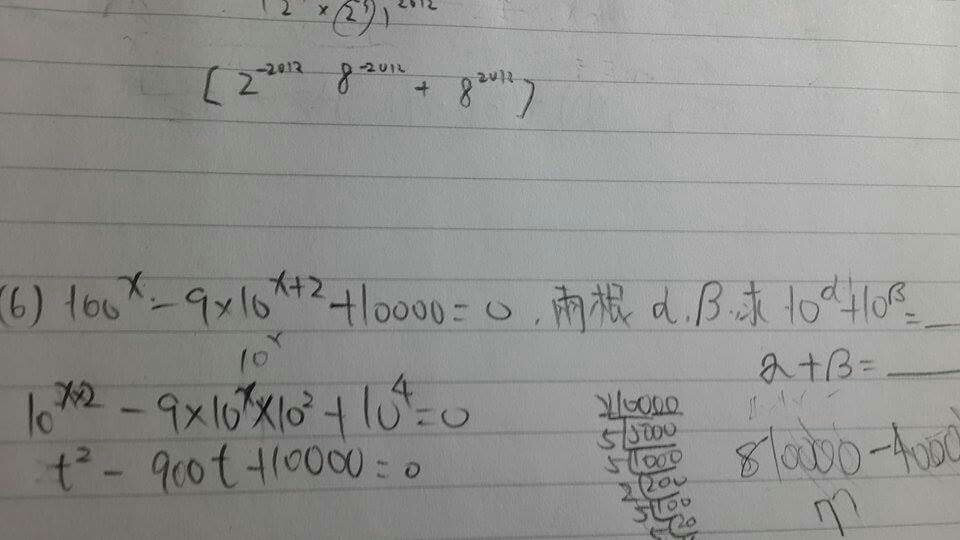 2 × (2³)²⁰¹²
[2⁻²⁰¹² 8⁻²⁰¹² + 8²⁰¹²)
(6) 100ˣ - 9×10ˣ⁺² + 10000 = 0 . 兩根 α.β.求 10^α + 10^β = __
10ˣ
α + β = ___
10^(x×2) - 9×10ˣ×10² + 10⁴ = 0
t² - 900t + 10000 = 0
810000 - 4000
10000
5 5000
5 1000
2 200
5 100
5 20